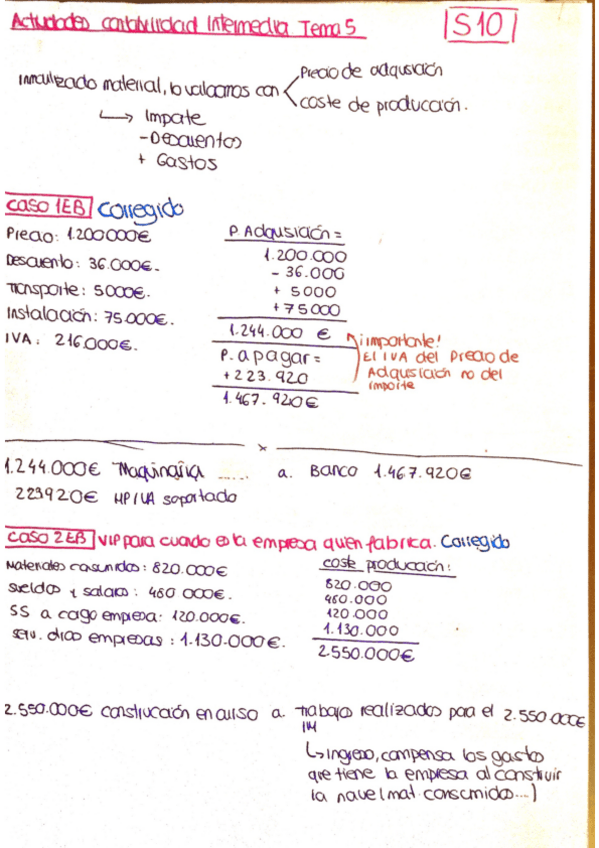 Actividades contabilidad Intermedia Tema 5
S10
inmovilizado material, lo valoramos con
Precio de adqusiación
coste de producción.
→ Importe
- Descuentos
+ Gastos
CASO 1EB Corregido
Precio: 1.200000€
Descuento: 36.000€.
Transporte: 5000€.
Instalación: 75.000€.
IVA: 216.000€.
P. Adqusiación =
1.200.000
- 36.000
+ 5000
+ 75000
1.244.000 €
P. a pagar =
+ 223.920
1.467.920€
¡importante!
El IVA del Precio de
Adqusiación no del
importe
x
1.244.000€ Maquinaria ...... a. Banco 1.467.920€
223920€ HP IVA soportado
CASO 2EB VIP para cuando es la empresa quien fabrica. Corregido
Materiales consumidos: 820.000€
Sueldos y salarios: 480.000€.
SS a cargo empresa: 120.000€.
serv. otras empresas: 1.130.000€.
coste producción:
820.000
480.000
120.000
1.130.000
2.550.000€
2.550.000€ construcción en curso a. trabajos realizados para el 2.550.000€
IM
↳ ingreso, compensa los gastos
que tiene la empresa al construir
la nave (mat. consumidos...)